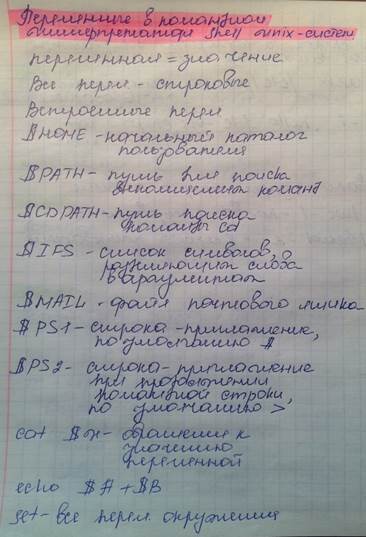 Переменные в командном
интерпретаторе shell unix-систем
переменная = значение
Все перем - строковые
Встроенные перем
$HOME - начальный каталог
пользователя
$PATH - путь для поиска
выполняемых команд
$CDPATH - путь поиска
команды cd
$IFS - список символов,
разделяющих слова
в аргументах
$MAIL - файл почтового ящика
$PS1 - строка - приглашение,
по умолчанию $
$PS2 - строка - приглашение
при продолжении
командной строки,
по умолчанию >
cat $x - обращение к
значению
переменной
echo $A + $B
set - все перем. окружения